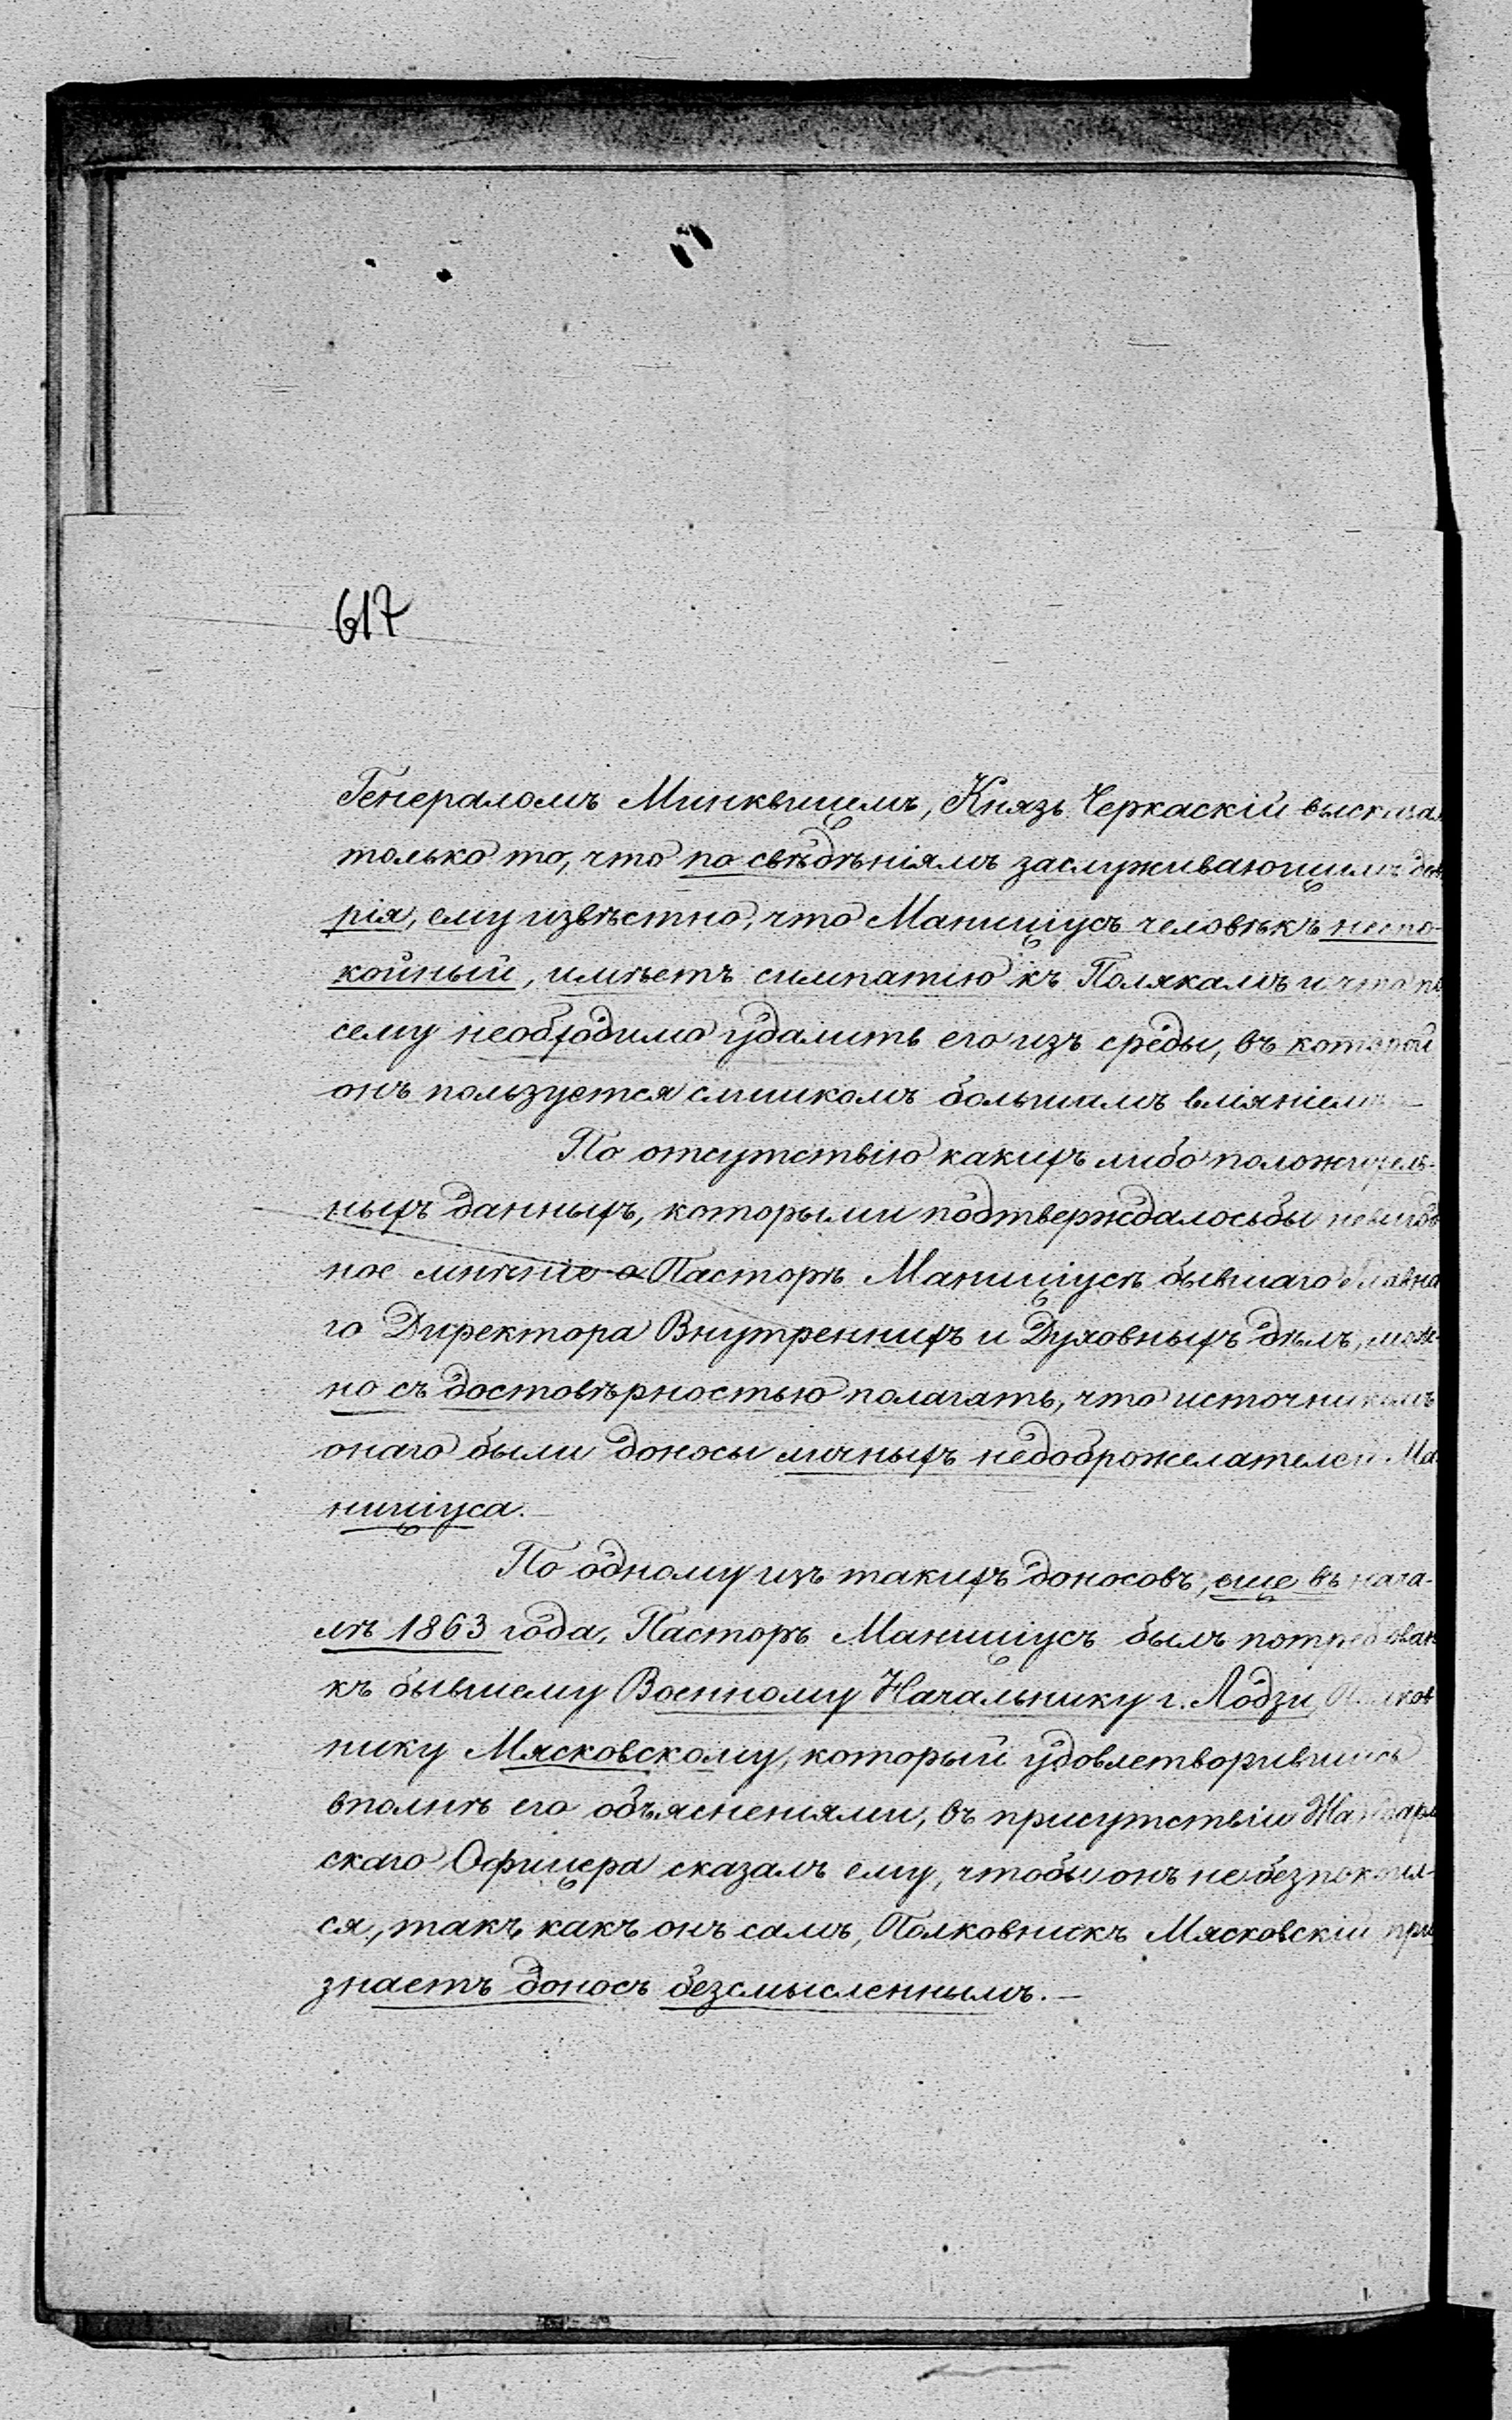 617
Генераломъ Минквицемъ, Князь Черкаскій
только то, что по свѣдѣніямъ заслуживающимъ
рія, ему извѣстно, что Маниціусъ человѣкъ неспо-
койный, имѣетъ симпатію къ Полякамъ и что
сему необходимо удалить его изъ среды, въ которой
онъ пользуется слишкомъ большимъ вліяніемъ
По отсутствію какихъ либо положитель-
ныхъ данныхъ, которыми подтверждалосьбы
ное мнѣніе о Пасторѣ Маниціусѣ бывшаго Главна
го Директора Внутреннихъ и Духовныхъ дѣлъ, мож-
но съ достовѣрностью полагать, что источникомъ
онаго были доносы личныхъ недоброжелателей Ма
ниціуса.—
По одному изъ такихъ доносовъ, еще въ нача-
лѣ 1863 года, Пасторъ Маниціусъ былъ потребован
къ бывшему Военному Начальнику г. Лодзи,
нику Мясковскому, который удовлетворившись
вполнѣ его объясненіями, въ присутствіи Жандарм
скаго Офицера сказалъ ему, чтобы онъ не безпокоил-
ся, такъ какъ онъ самъ, Полковникъ Мясковскій при
знаетъ доносъ безсмысленнымъ.—